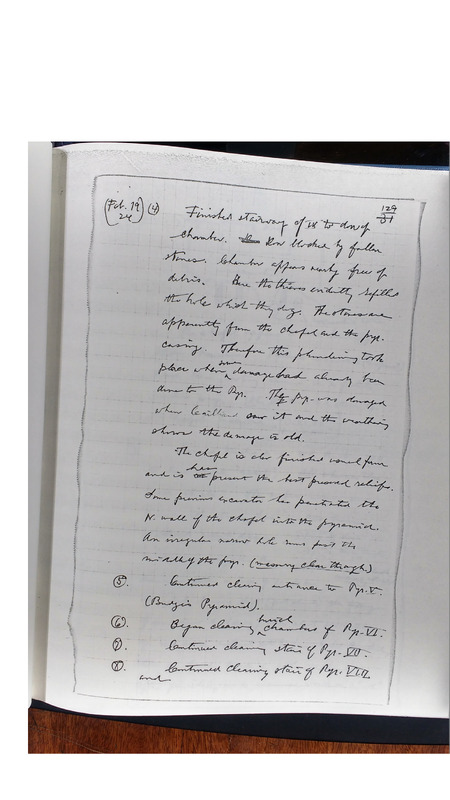 129
31
(Feb. 19
24) (4) Finished stairway of to door of
chamber. Door blocked by fallen
stones. Chamber appears nearly free of
debris. Here the thieves evidently refilled
the hole which they dug. The stones are
apparently from the chapel and the pyr.
casing. Therefore this plundering took
place when some damage had already been
done to the Pyr. The pyr. was damaged
when Cailliaud saw it and the weathering
shows the damage is old.
The chapel is also finished usual form
and is present the best preserved reliefs.
Some previous excavator has penetrated the
N. wall of the chapel into the pyramid.
An irregular narrow hole runs past the
middle of the pyr. (masonry clear through)
(5). Continued clearing entrance to Pyr. V.
(Budge's Pyramid).
(6). Began clearing chambers of Pyr. VI.
(7). Continued clearing stair of Pyr.
(8). Continued clearing stair of Pyr.
and